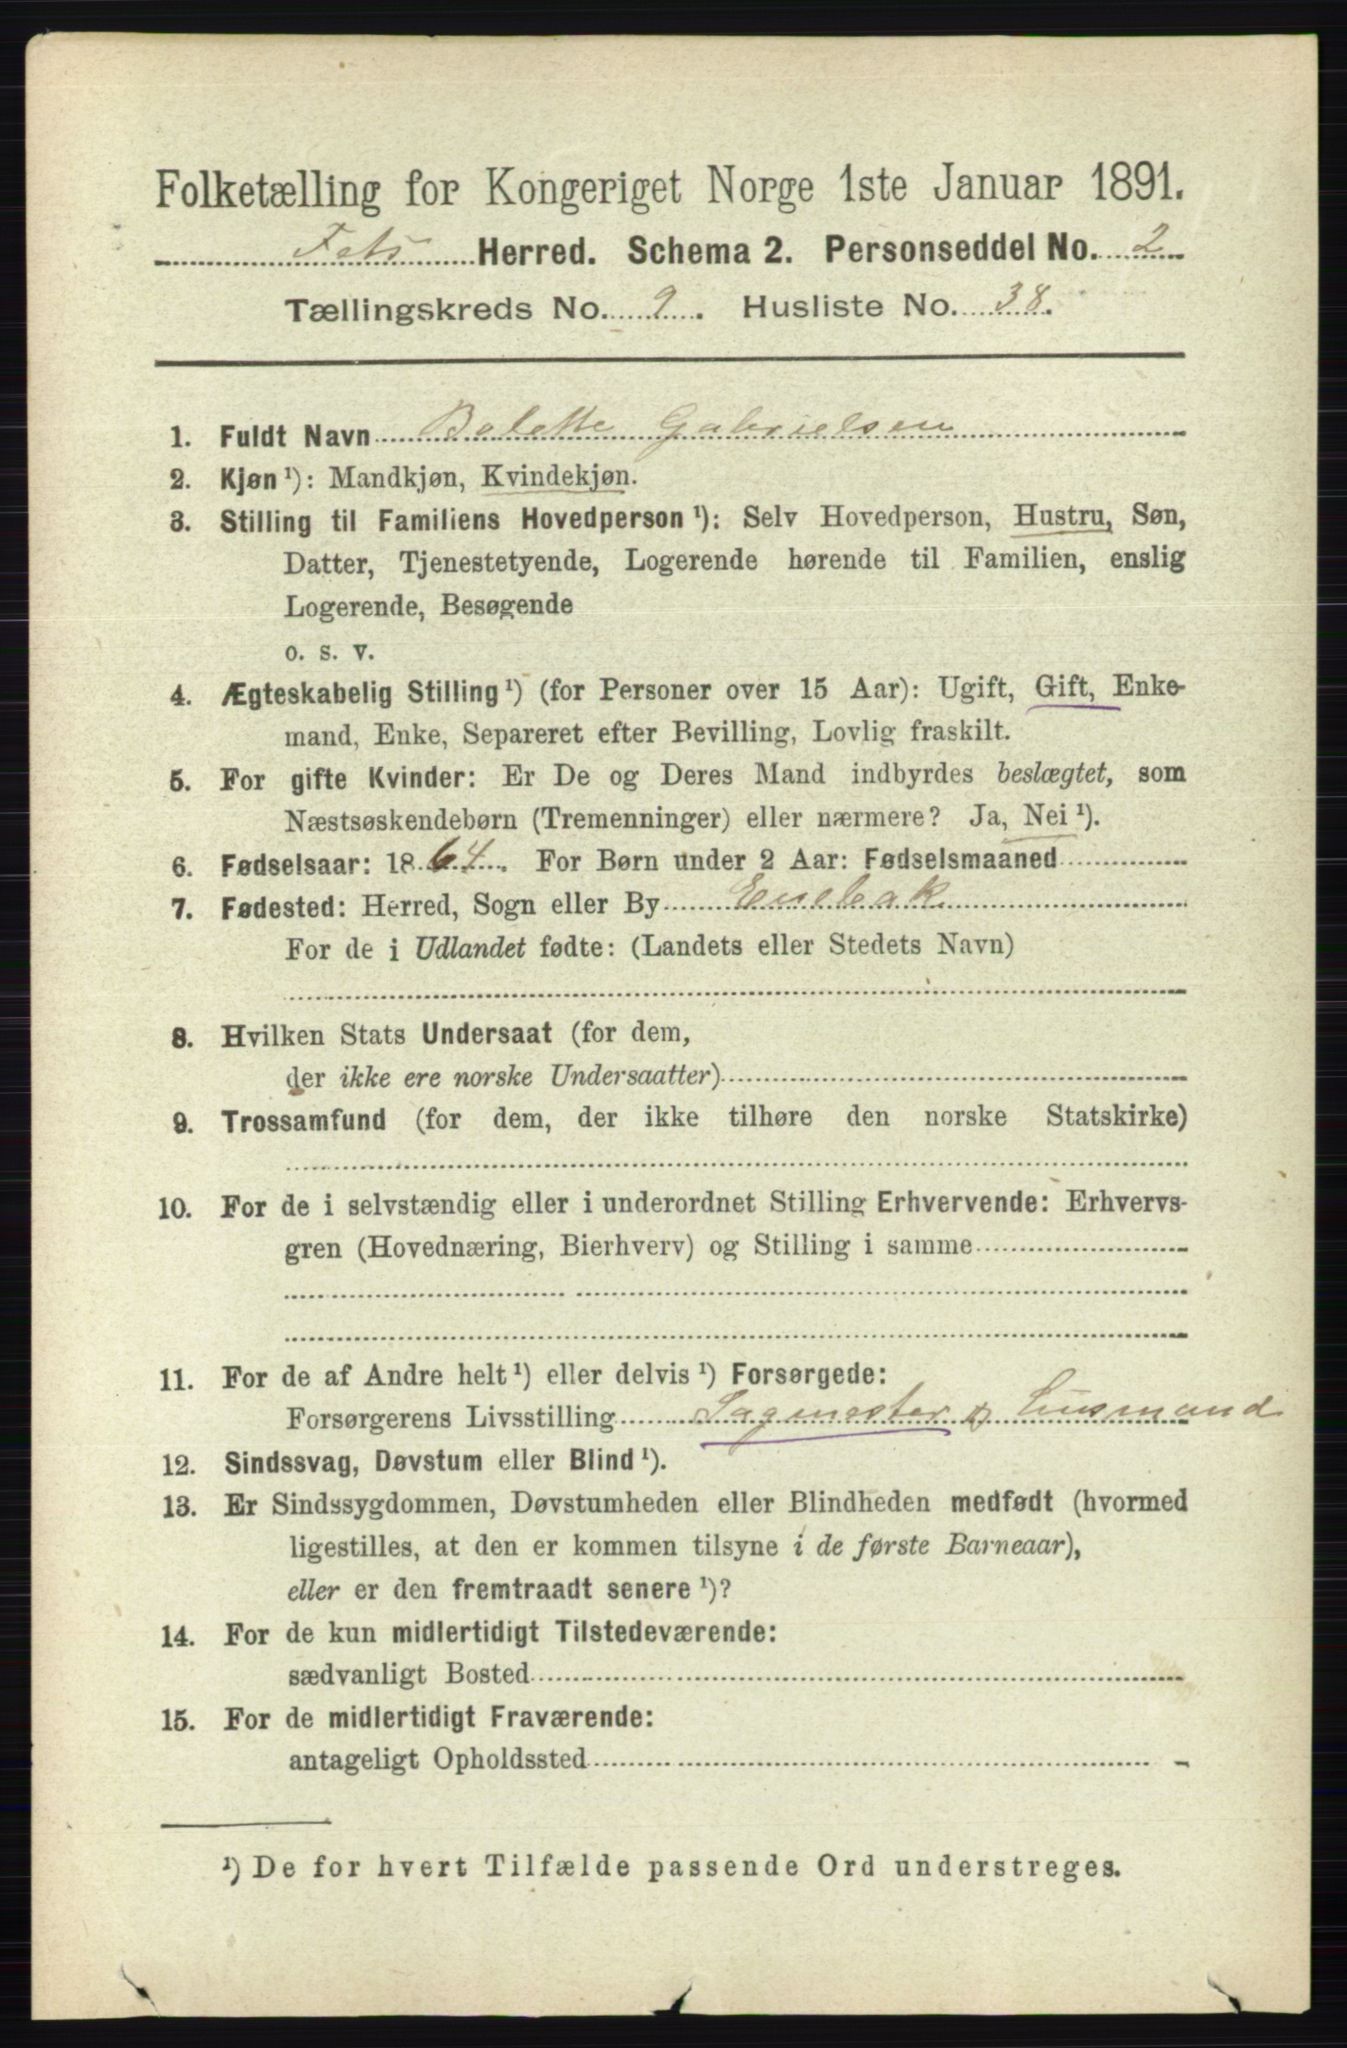 Folketælling for Kongeriget Norge 1ste Januar 1891.
Fets Herred. Schema 2. Personseddel No. 2
Tællingskreds No. 9. Husliste No. 38.
1. Fuldt Navn Bolette Gabrielsen
2. Kjøn ¹): Mandkjøn, Kvindekjøn.
3. Stilling til Familiens Hovedperson ¹): Selv Hovedperson, Hustru, Søn,
Datter, Tjenestetyende, Logerende hørende til Familien, enslig
Logerende, Besøgende
o. s. v.
4. Ægteskabelig Stilling ¹) (for Personer over 15 Aar): Ugift, Gift, Enke-
mand, Enke, Separeret efter Bevilling, Lovlig fraskilt.
5. For gifte Kvinder: Er De og Deres Mand indbyrdes beslægtet, som
Næstsøskendebørn (Tremenninger) eller nærmere? Ja, Nei ¹).
6. Fødselsaar: 1864. For Børn under 2 Aar: Fødselsmaaned
7. Fødested: Herred, Sogn eller By Enebak
For de i Udlandet fødte: (Landets eller Stedets Navn)
8. Hvilken Stats Undersaat (for dem,
der ikke ere norske Undersaatter)
9. Trossamfund (for dem, der ikke tilhøre den norske Statskirke)
10. For de i selvstændig eller i underordnet Stilling Erhvervende: Erhvervs-
gren (Hovednæring, Bierhverv) og Stilling i samme
11. For de af Andre helt ¹) eller delvis ¹) Forsørgede:
Forsørgerens Livsstilling Sagmester & Husmand
12. Sindssvag, Døvstum eller Blind ¹).
13. Er Sindssygdommen, Døvstumheden eller Blindheden medfødt (hvormed
ligestilles, at den er kommen tilsyne i de første Barneaar),
eller er den fremtraadt senere ¹)?
14. For de kun midlertidigt Tilstedeværende:
sædvanligt Bosted
15. For de midlertidigt Fraværende:
antageligt Opholdssted
¹) De for hvert Tilfælde passende Ord understreges.